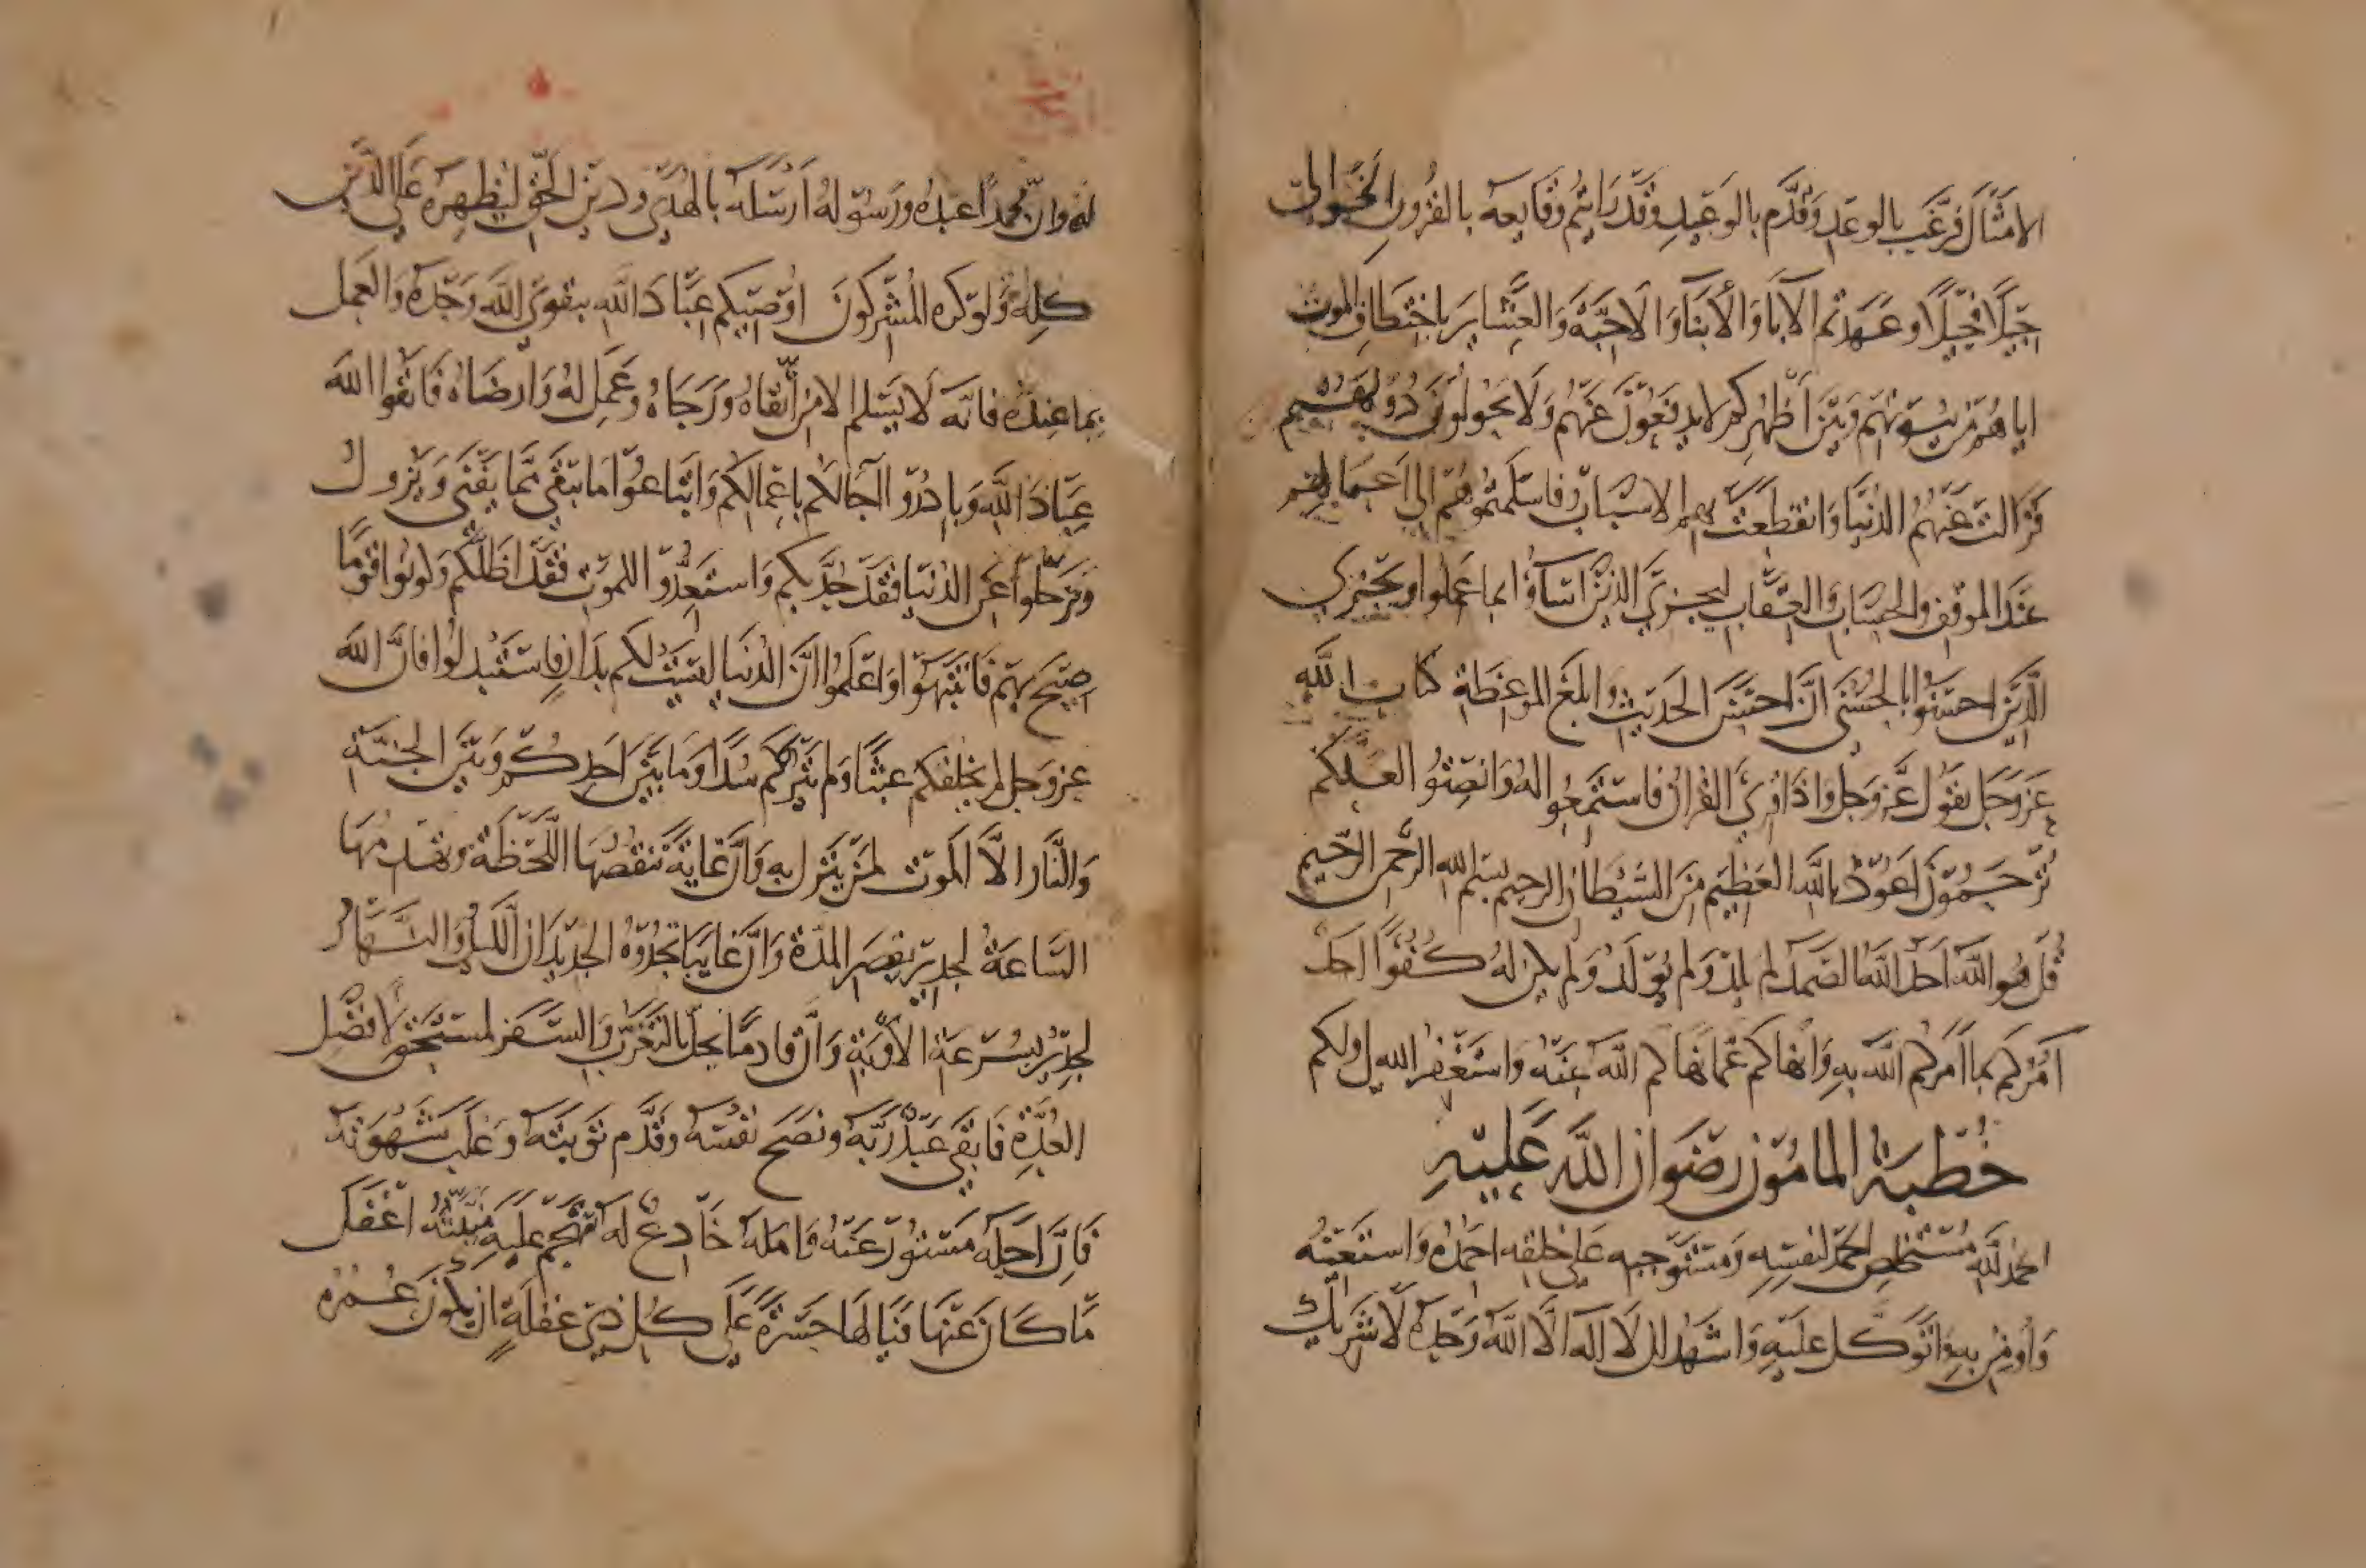 الامثال فرغب بالوعد وقدم بالوعيد وقد رايتم وقايعه بالقرون الخوالي
جيلا فجيلا وعهدتم الآبا والأبنا والاحبة والعشاير باختطاف الموت
اياهم من بيوتهم وبين اظهركم لا يدفعون عنهم ولا يحولون دونهم
فزالت عنهم الدنيا وانقطعت بهم الاسباب فاسلمتهم الي اعمالهم
عند الموقف والحساب والعقاب ليجزي الذين اساؤا بما عملوا ويجزي
الذين احسنوا بالحسنى ان احسن الحديث وابلغ الموعظة كتاب الله
عز وجل يقول عز وجل واذا قرئ القران فاستمعوا له وانصتوا لعلكم
ترحمون اعوذ بالله العظيم من الشيطان الرجيم بسم الله الرحمن الرحيم
قل هو الله احد الله الصمد لم يلد ولم يولد ولم يكن له كفوا احد
آمركم بما امركم الله به وانهاكم عما نهاكم الله عنه واستغفر الله لي ولكم
خطبة المامون رضوان الله عليه
الحمد لله مستخلص الحمد لنفسه ومستوجبه على خلقه احمده واستعينه
واومن به واتوكل عليه واشهد ان لا اله الا الله وحده لا شريك
له وان محمدا عبده ورسوله ارسله بالهدى ودين الحق ليظهره على الدين
كله ولو كره المشركون اوصيكم عباد الله بتقوى الله وحده والعمل
بما عنده فانه لا يسلم الا من اتقاه ورجاه وعمل له وارضاه فاتقوا الله
عباد الله وبادروا آجالكم باعمالكم وابتاعوا ما يبقى مما يفنى ويزول
وترحلوا عن الدنيا فقد جد بكم واستعدوا للموت فقد اظلكم وكونوا قوما
صيح بهم فانتبهوا واعلموا ان الدنيا ليست لكم بدار فاستبدلوا فان الله
عز وجل لم يخلقكم عبثا ولم يترككم سدا وما بين احدكم وبين الجنة
والنار الا الموت لمن ينزل به وان غاية تنقصها اللحظة وتهدمها
الساعة لجدير بقصر المدة وان غايبا تحدوه الجديدان الليل والنهار
لجدير بسرعة الأوبة وان قادما يحل بالتغرب والسفر لمستحق لافضل
العدة فاتقى عبد ربه ونصح نفسه وقدم توبته وغلب شهوته
فان اجله مستور عنه وامله خادع له تهجم عليه منيته اغفل
ما كان عنها فيا لها حسرة على كل ذي غفلة ان يكون عمره